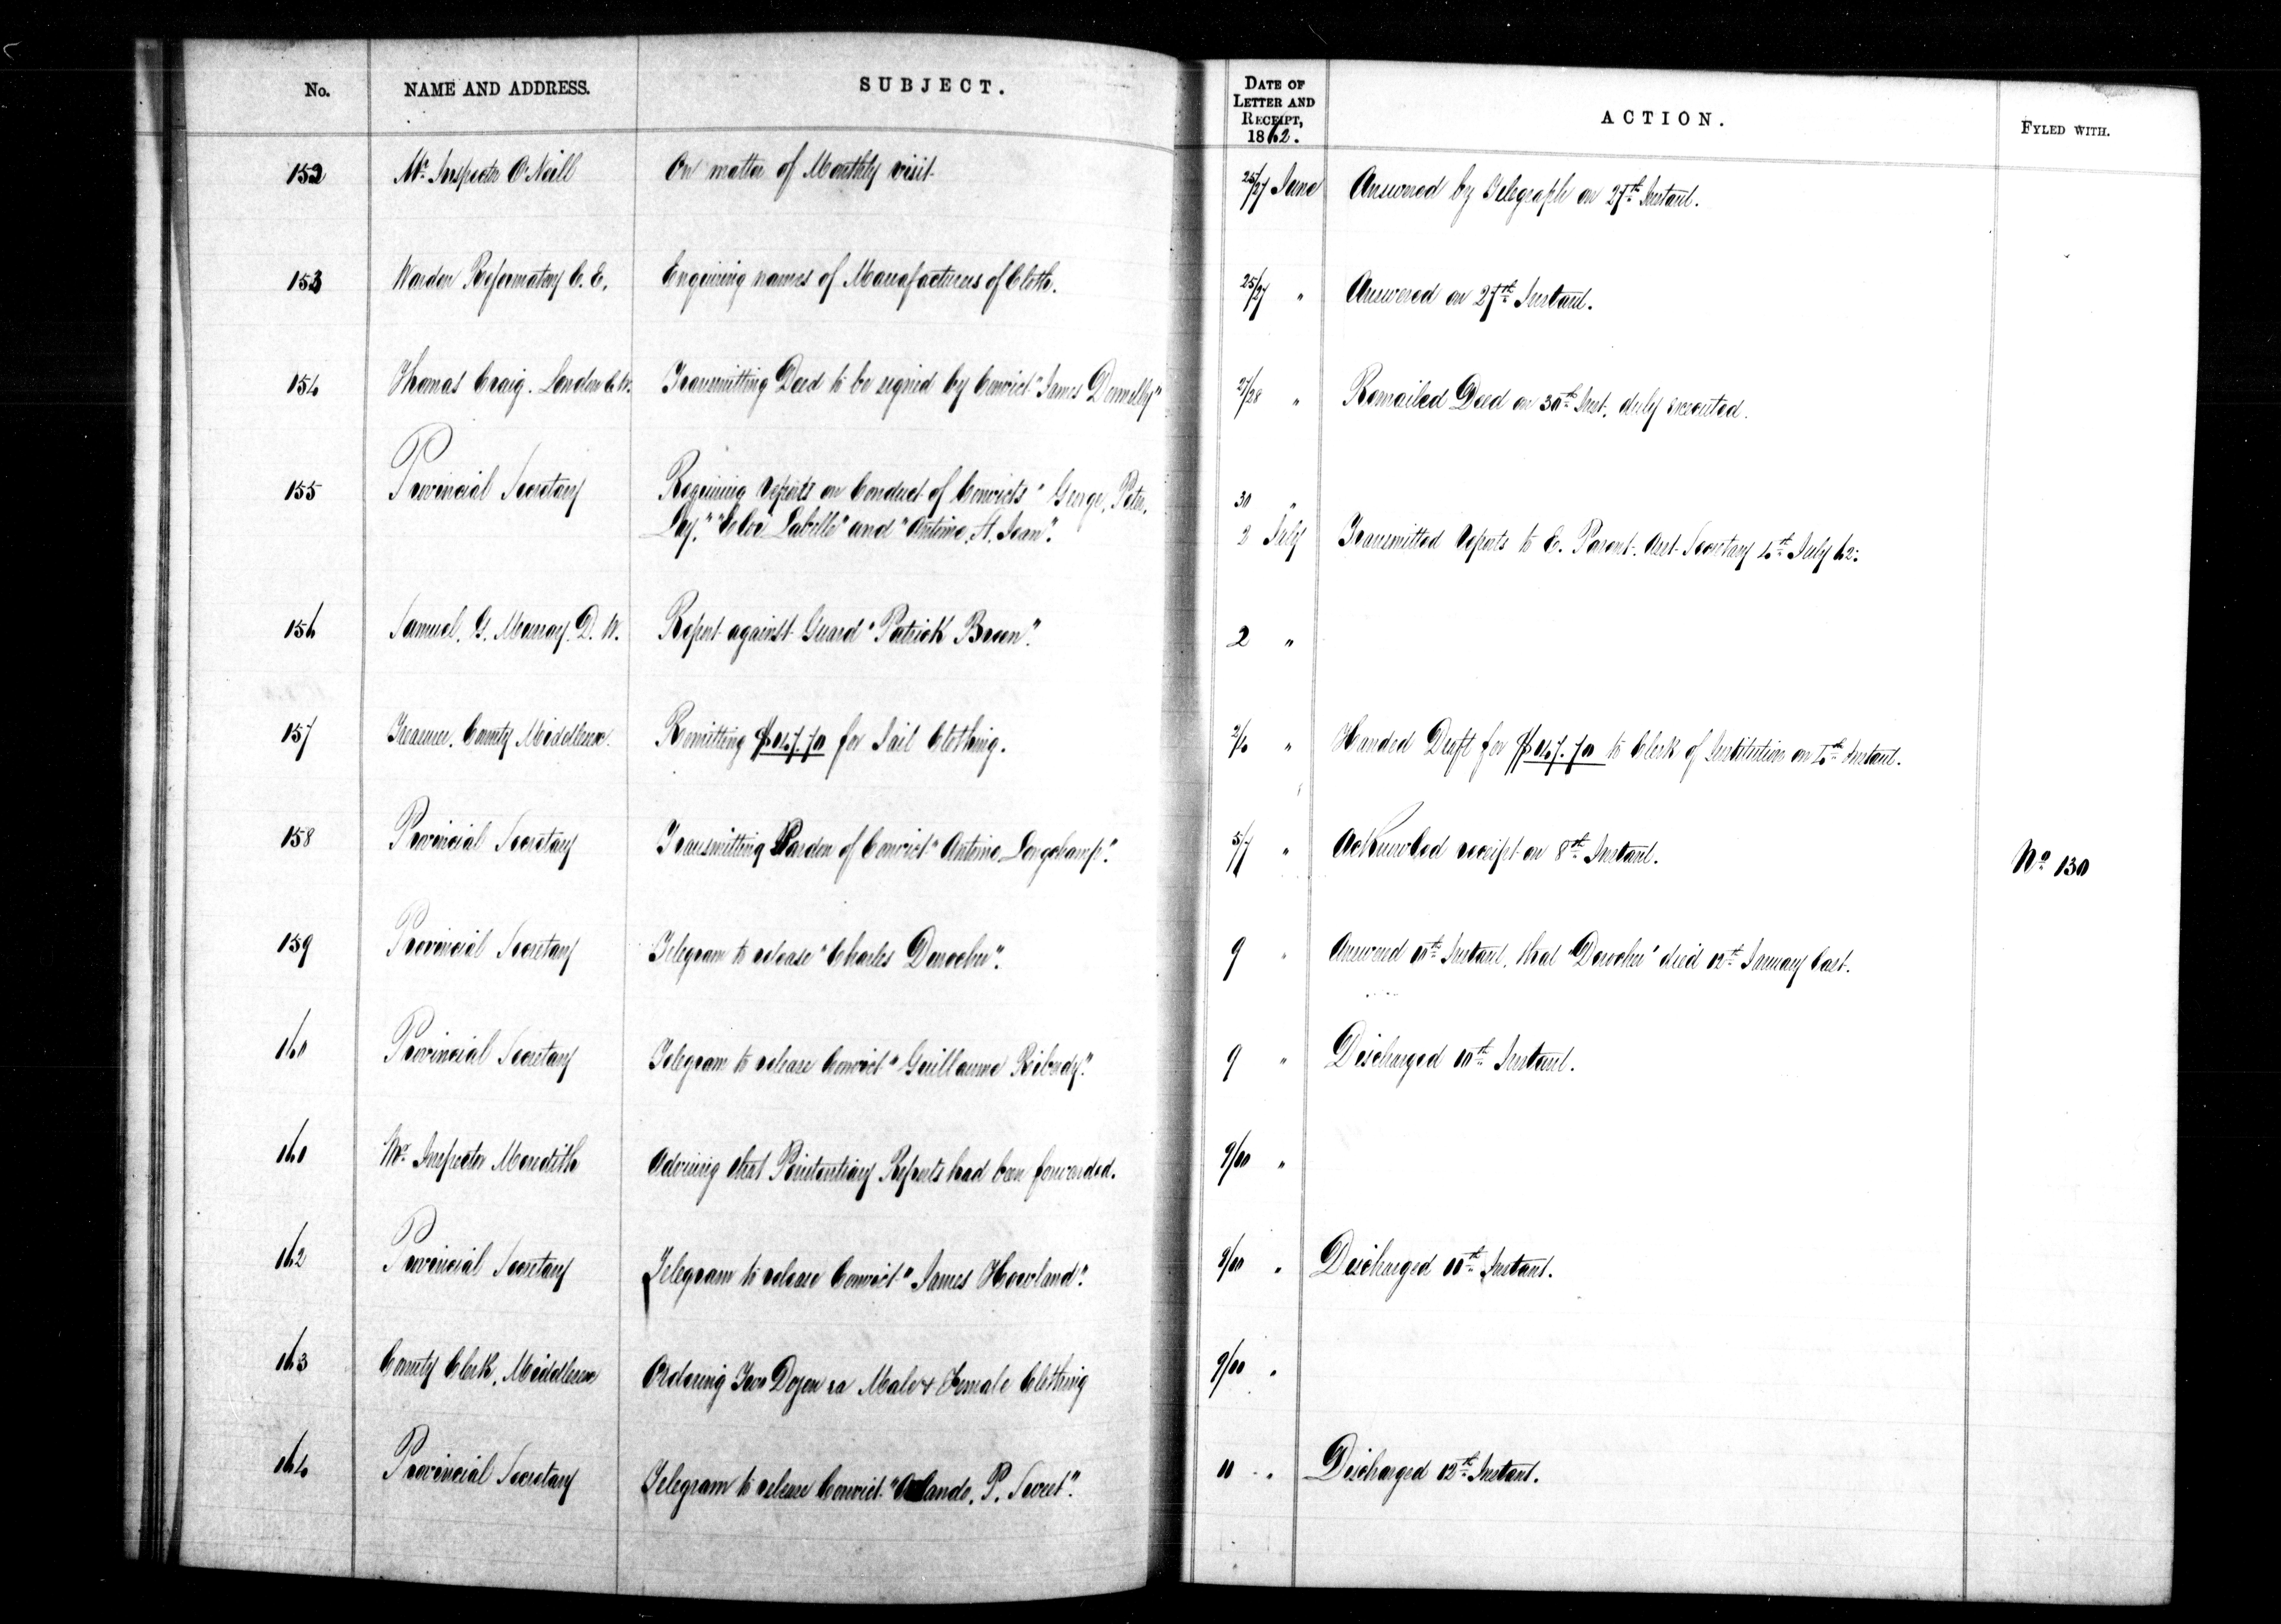 No. NAME AND ADDRESS. SUBJECT. DATE OF LETTER AND RECEIPT, 1862. ACTION. FYLED WITH.
152 Mr. Inspector O'Neill On matter of Monthly visit 25/27 June Answered by Telegraph on 27th Instant.
153 Warden Reformatory C. E. Enquiring names of Manufacturers of Cloth. 25/27 " Answered on 27th Instant.
154 Thomas Craig. London C.W. Transmitting Deed to be signed by Convict "James Donnelly" 27/28 " Remailed Deed on 30th Inst. duly executed.
155 Provincial Secretary Requiring reports on Conduct of Convicts "George, Peter, 30 "
Lay," "Labelle" and "Antoine St. Jean". 2 July Transmitted reports to E. Parent. Asst. Secretary 4th July 62.
156 Samuel. G. Murray. D. W. Report against Guard "Patrick Breen". 2 "
157 Treasurer. County Middlesex. Remitting for Jail Clothing. 2/4 " Handed Draft for to Clerk of Institution on 4th Instant.
158 Provincial Secretary Transmitting Pardon of Convict "Antoine Longchamp". 5/7 " Acknowled receipt on 8th Instant. No 130
159 Provincial Secretary Telegram to release "Charles Durocher". 9 " Answered 10th Instant, that "Durocher" died 12th January last.
160 Provincial Secretary Telegram to release Convict "Guillaume Ribardy". 9 " Discharged 10th Instant.
161 Mr. Inspector Meredith Advising that Penitentiary Reports had been forwarded. 9/10 "
162 Provincial Secretary Telegram to release Convict "James Howland". 9/10 " Discharged 11th Instant.
163 County Clerk, Middlesex Ordering Two Dozen ea Male & Female Clothing 9/10 "
164 Provincial Secretary Telegram to release Convict "Orlando. P. Sweet". 11 " Discharged 12th Instant.